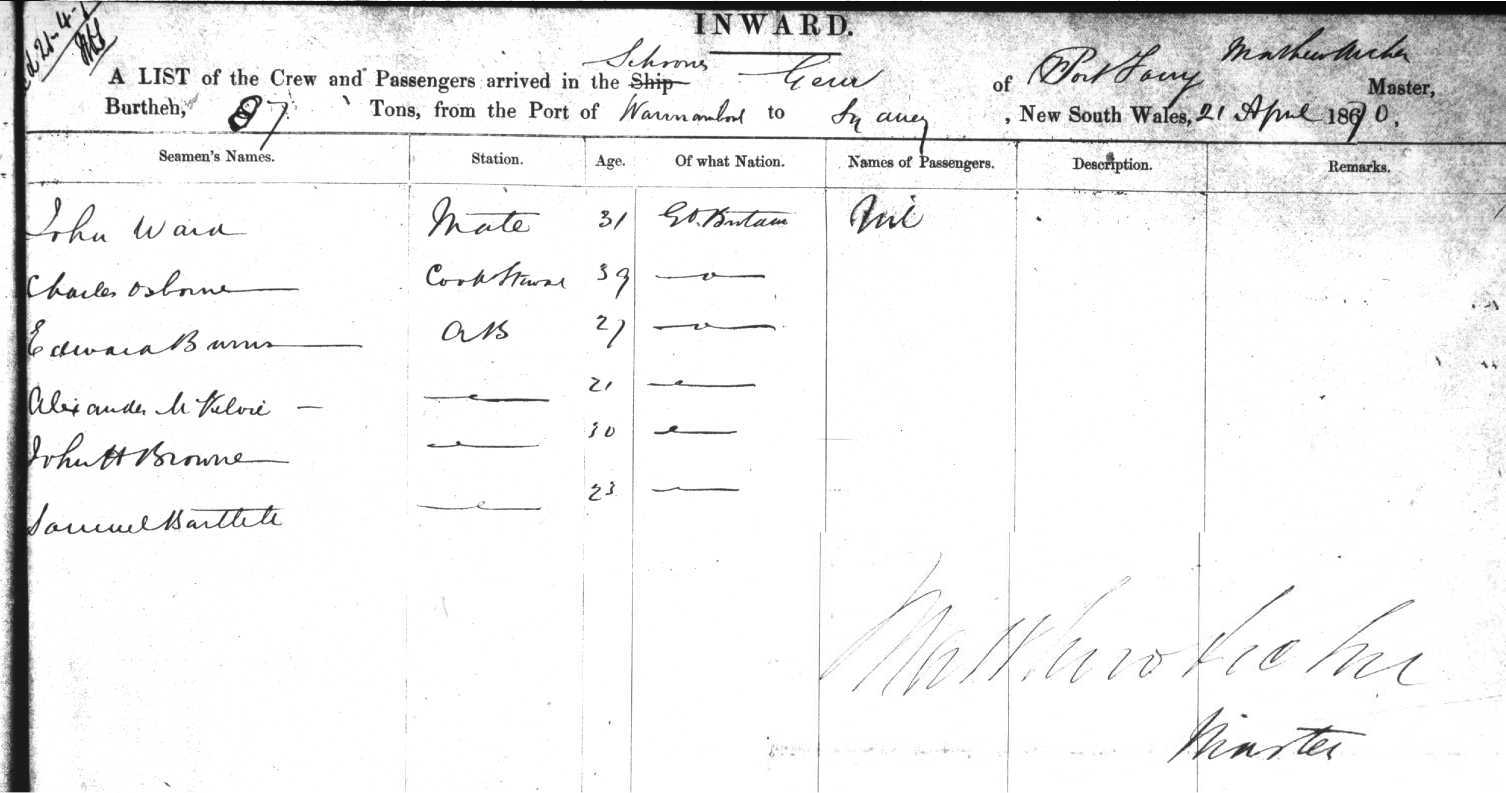 INWARD.
A LIST of the Crew and Passengers arrived in the Ship Schooner Gem of Port Fairy Mathew Archer Master,
Burthen, 87 Tons, from the Port of Warrnambool to Sydney, New South Wales, 21 April 1870,
Seamen's Names. Station. Age. Of what Nation. Names of Passengers. Description. Remarks.
John Ward Mate 31 Gt. Britain Nil
Charles Osborne Cook Steward 39 —〃—
Edward Burns AB 27 —〃—
Alexander McKelvie —〃— 21 —〃—
John H Browne —〃— 30 —〃—
Samuel Bartlett —〃— 23 —〃—
Matthew Archer
Master